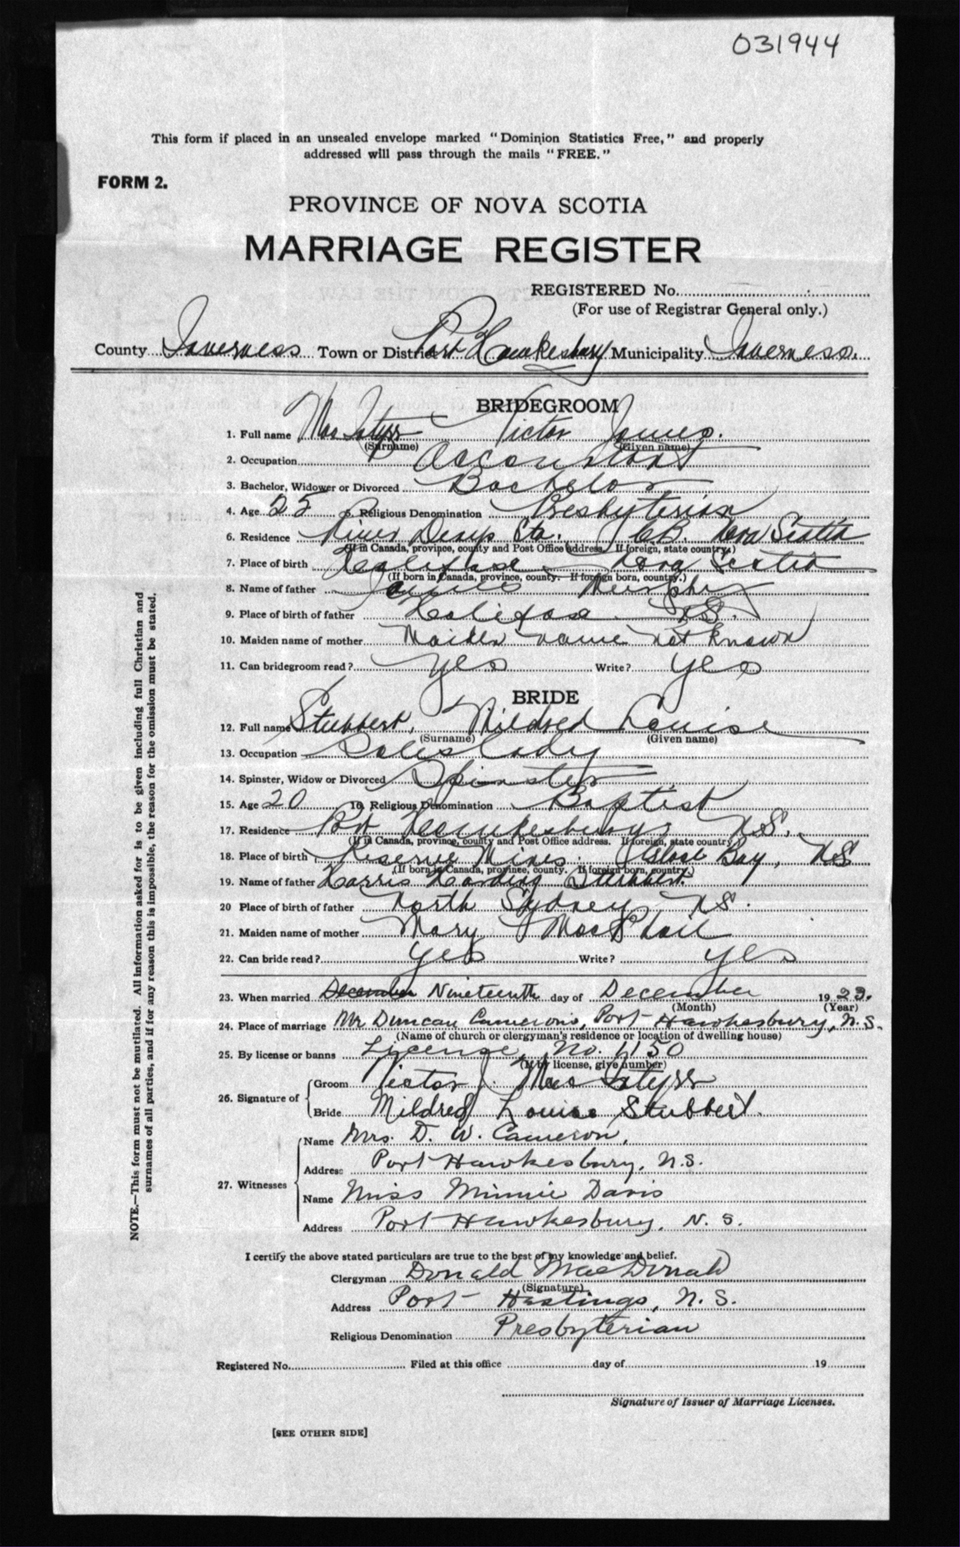 031944
This form if placed in an unsealed envelope marked "Dominion Statistics Free," and properly
addressed will pass through the mails "FREE."
FORM 2.
PROVINCE OF NOVA SCOTIA
MARRIAGE REGISTER
REGISTERED No.
(For use of Registrar General only.)
County Inverness Town or District Port Hawkesbury Municipality Inverness.
BRIDEGROOM
1. Full name MacIntyre Victor James.
(Surname) (Given name)
2. Occupation Accountant
3. Bachelor, Widower or Divorced Bachelor
4. Age 25 5. Religious Denomination Presbyterian
6. Residence River Denys Sta. C.B. Nova Scotia
(If in Canada, province, county and Post Office address. If foreign, state country.)
7. Place of birth Halifax Nova Scotia
(If born in Canada, province, county. If foreign born, country.)
8. Name of father James Murphy
9. Place of birth of father Halifax N.S.
10. Maiden name of mother Maiden name not known
11. Can bridegroom read? yes Write? yes
BRIDE
12. Full name Stubbert, Mildred Louise
(Surname) (Given name)
13. Occupation Saleslady
14. Spinster, Widow or Divorced Spinster
15. Age 20 16. Religious Denomination Baptist
17. Residence Port Hawkesbury N.S.
(If in Canada, province, county and Post Office address. If foreign, state country.)
18. Place of birth Reserve Mines. Glace Bay, N.S
(If born in Canada, province, county. If foreign born, country.)
19. Name of father Harris Harding Stubbert.
20 Place of birth of father North Sydney N.S.
21. Maiden name of mother Mary MacPhail
22. Can bride read? yes Write? yes
23. When married December Nineteenth day of December 1923.
(Month) (Year)
24. Place of marriage Mr Duncan Cameron's, Port Hawkesbury, N.S.
(Name of church or clergyman's residence or location of dwelling house)
25. By license or banns License, No. 1150
(If by license, give number)
26. Signature of Groom Victor J. MacIntyre
Bride Mildred Louise Stubbert.
27. Witnesses Name Mrs. D. W. Cameron,
Address Port Hawkesbury, N.S.
Name Miss Minnie Davis
Address Port Hawkesbury, N. S.
I certify the above stated particulars are true to the best of my knowledge and belief.
Clergyman Donald MacDonald
(Signature)
Address Port Hastings, N.S.
Religious Denomination Presbyterian
Registered No. Filed at this office day of 19
Signature of Issuer of Marriage Licenses.
[SEE OTHER SIDE]
NOTE.—This form must not be mutilated. All information asked for is to be given including full Christian and
surnames of all parties, and if for any reason this is impossible, the reason for the omission must be stated.